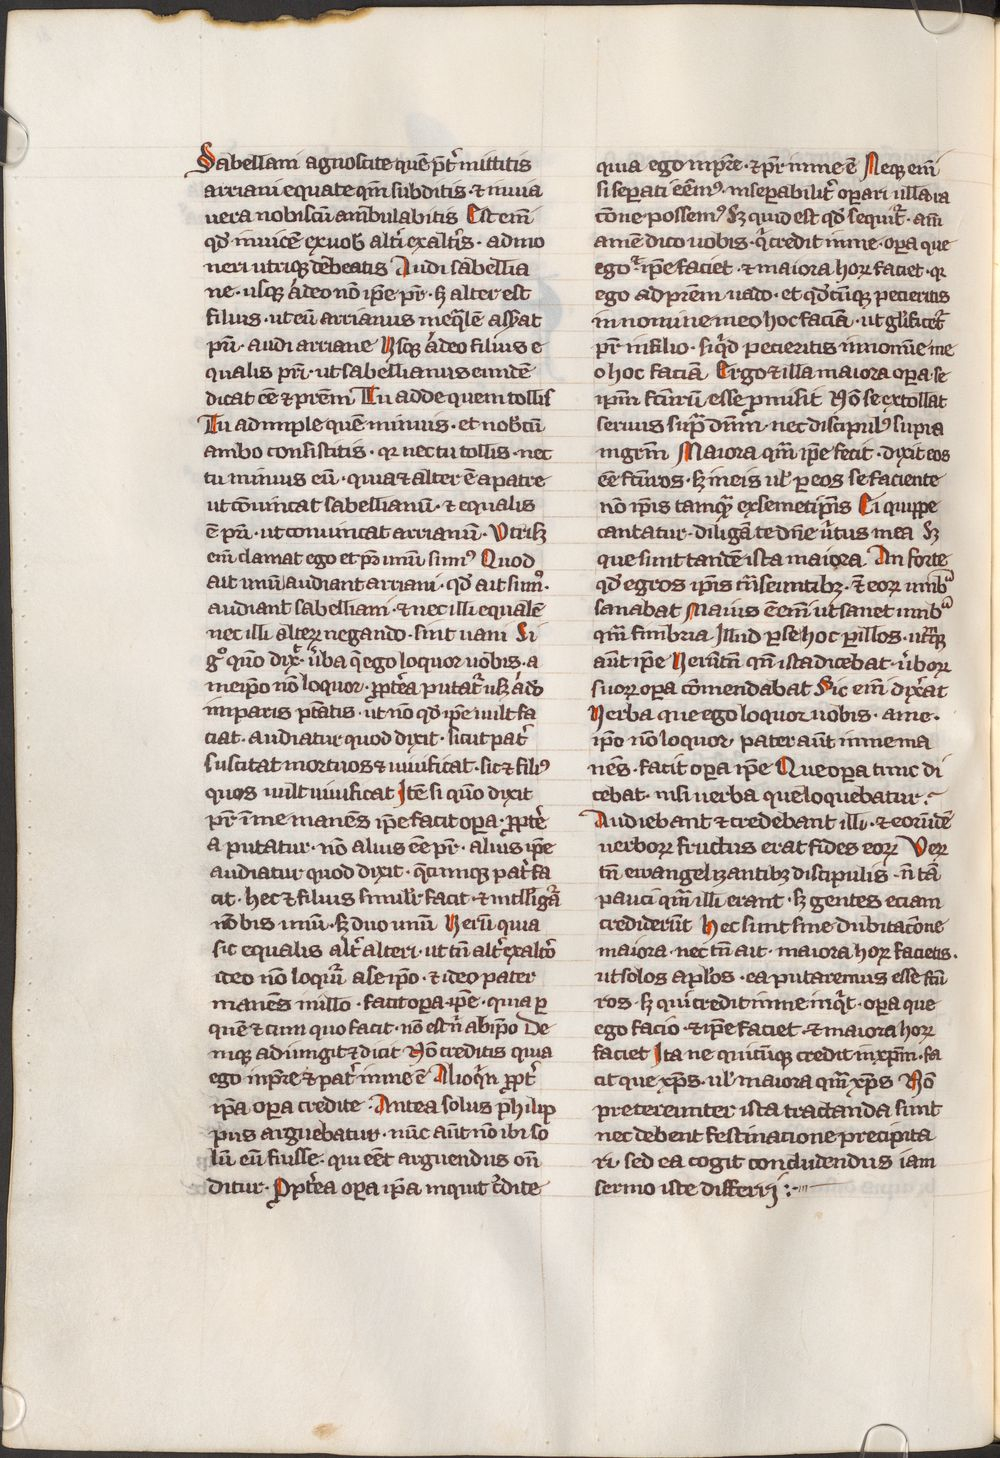 Sabelliani agnoscite quē pr̄t mittitis
arriani equate qm̄ subditis · ⁊ in uia
uera nobiscū ambulabitis Est eni
qd̛ inuicē ex uob̄ alt̛i ex alt̛is · admo
neri utriqꝫ debeatis Audi sabellia
ne · usqꝫ ádeo nō ip̄e pr̄ · sꝫ alter est
filius · ut eū arrianus ineq̄lē ass̛at
pr̄i · audi arriane Usqꝫ ádeo filius e
qualis pr̄i · ut sabellianus eundē
dicat eē ⁊ prēm Tu adde quem tollis
Tu adimple quē minuis · et nobcū
ambo consistitis · qr nec tu tollis · nec
tu minuis eū · quia ⁊ alter ē a patre
ut cōuincat sabellianū · ⁊ equalis
ē pr̄i · ut conuincat arrianū · Utrisꝫ
eni clamat ego et pr̄ unū sum⁹ Quod
ait unū audiant arriani · qd̛ ait sum⁹ ·
audiant sabelliani · ⁊ nec illi equalē
nec illi alteꝝ negando · sint uani Si
g° qn̄o dix̄ · ưba q̄ ego loquor uobis · a
meip̄o nō loquor · ꝓpt̛ea putat̛ usꝫ ádō
imparis pt̄atis · ut nō qd̛ ip̄e uult fa
ciat · audiatur quod dixit · sicut pat̛
suscitat mortuos ⁊ uiuificat · sic ⁊ fili⁹
quos uult uiuificat Itē si qn̄o dixit
pr̄ ī me manēs ip̄e facit oꝑa · ꝓpt̛e
a putatur · nō alius eē pr̄ · alius ip̄e
audiatur quod dixit · q̄cūnqꝫ pat̛ fa
cit · hec ⁊ filius simili̛ facit · ⁊ intelligāt
nobis unū · sꝫ duo unū Uerū quia
sic equalis alt̛ alteri · ut tn̄ alt̛ ex alt̛o
ideo nō loquit̛ a se ip̄o · ⁊ ideo pater
manēs in illo · facit oꝑa ip̄e · quia ꝑ
quē ⁊ cum quo facit · nō est n̛ ab ip̄o De
niqꝫ adiungit ⁊ dicit Nō creditis quia
ego in pr̄e ⁊ pat̛ in me ē Alioq̛n ꝓpt̛
ip̄a oꝑa credite · Antea solus philip
pus arguebatur · nūc aūt nō ibi so
lū eū fuisse · qui eēt arguendus on̄
ditur · Ꝓpt̛ea oꝑa ip̄a inquit c̛dite
quia ego in pr̄e · ⁊ pr̄ in me ē Neqꝫ eni
si seꝑati eēm⁹ · inseꝑabilit̛ oꝑari ulla ra
cōne possem⁹ Sꝫ quid est qd̛ sequit̛ · am̄
amē dico uobis · q̛ credit in me · oꝑa que
ego ip̄e faciet · ⁊ maiora hoꝝ faciet · qr
ego ad prēm uado · et qd̛cūqꝫ pecieritis
in nomine meo hoc faciā · ut gl̄ificet̛
pr̄ in filio · siq̛d pecieritis in nom̄e me
o hoc faciā Ergo ⁊ illa maiora oꝑa se
ip̄m fcūrū esse ꝓmisit Nō se extollat
seruus sup̛ dn̄m · nec discipul⁹ supra
mgrm̄ Maiora qm̄ ip̄e fecit · dixit eos
eē fcūros · sꝫ in eis ul̛ ꝑ eos se faciente
nō ip̄is tamqȝ ex semetip̄is Ei quippe
cantatur · diligā te dn̄e ưtus mea Sꝫ
que sunt tandē ista maiora An forte
qd̛ egros ip̄is t̄nseuntibꝫ · ⁊ eoꝝ umbᵃ
sanabat Maius ē eni ut sanet umbᵃ
qm̄ fimbria Illud ꝑ se hoc ꝑ illos · ut̛qꝫ
aūt ip̄e Uerūtn̄ qn̄ ista dicebat · ưboꝝ
suoꝝ oꝑa cōmendabat Sic eni dix̛at
Uerba que ego loquor uobis · a me ·
ip̄o nō loquor · pater aūt in me ma
nēs · facit oꝑa ip̄e Que oꝑa tunc di
cebat · nisi uerba que loquebatur ·
Audiebant ⁊ credebant illi · ⁊ eorūdē
uerboꝝ fructus erat fides eoꝝ Ueꝝ
tn̄ euuangelizantibꝫ discipulis · n̄ tā
pauci qm̄ illi erant · sꝫ gentes eciam
crediderūt Hec sunt sine dubitacōne
maiora · nec tn̄ ait · maiora hoꝝ facietis ·
ut solos apl̄os · ea putaremus esse fcū
ros · sꝫ qui credit in me inq̛t · oꝑa que
ego facio · ⁊ ip̄e faciet · ⁊ maiora hoꝝ
faciet Ita ne quicūqꝫ credit in xp̄m · fa
cit que xp̄s · ul̛ maiora qm̄ xp̄s Nō
pretereunter ista tractanda sunt
nec debent festinacione precipita
ri · sed ea cogit concludendus iam
sermo iste differri :·